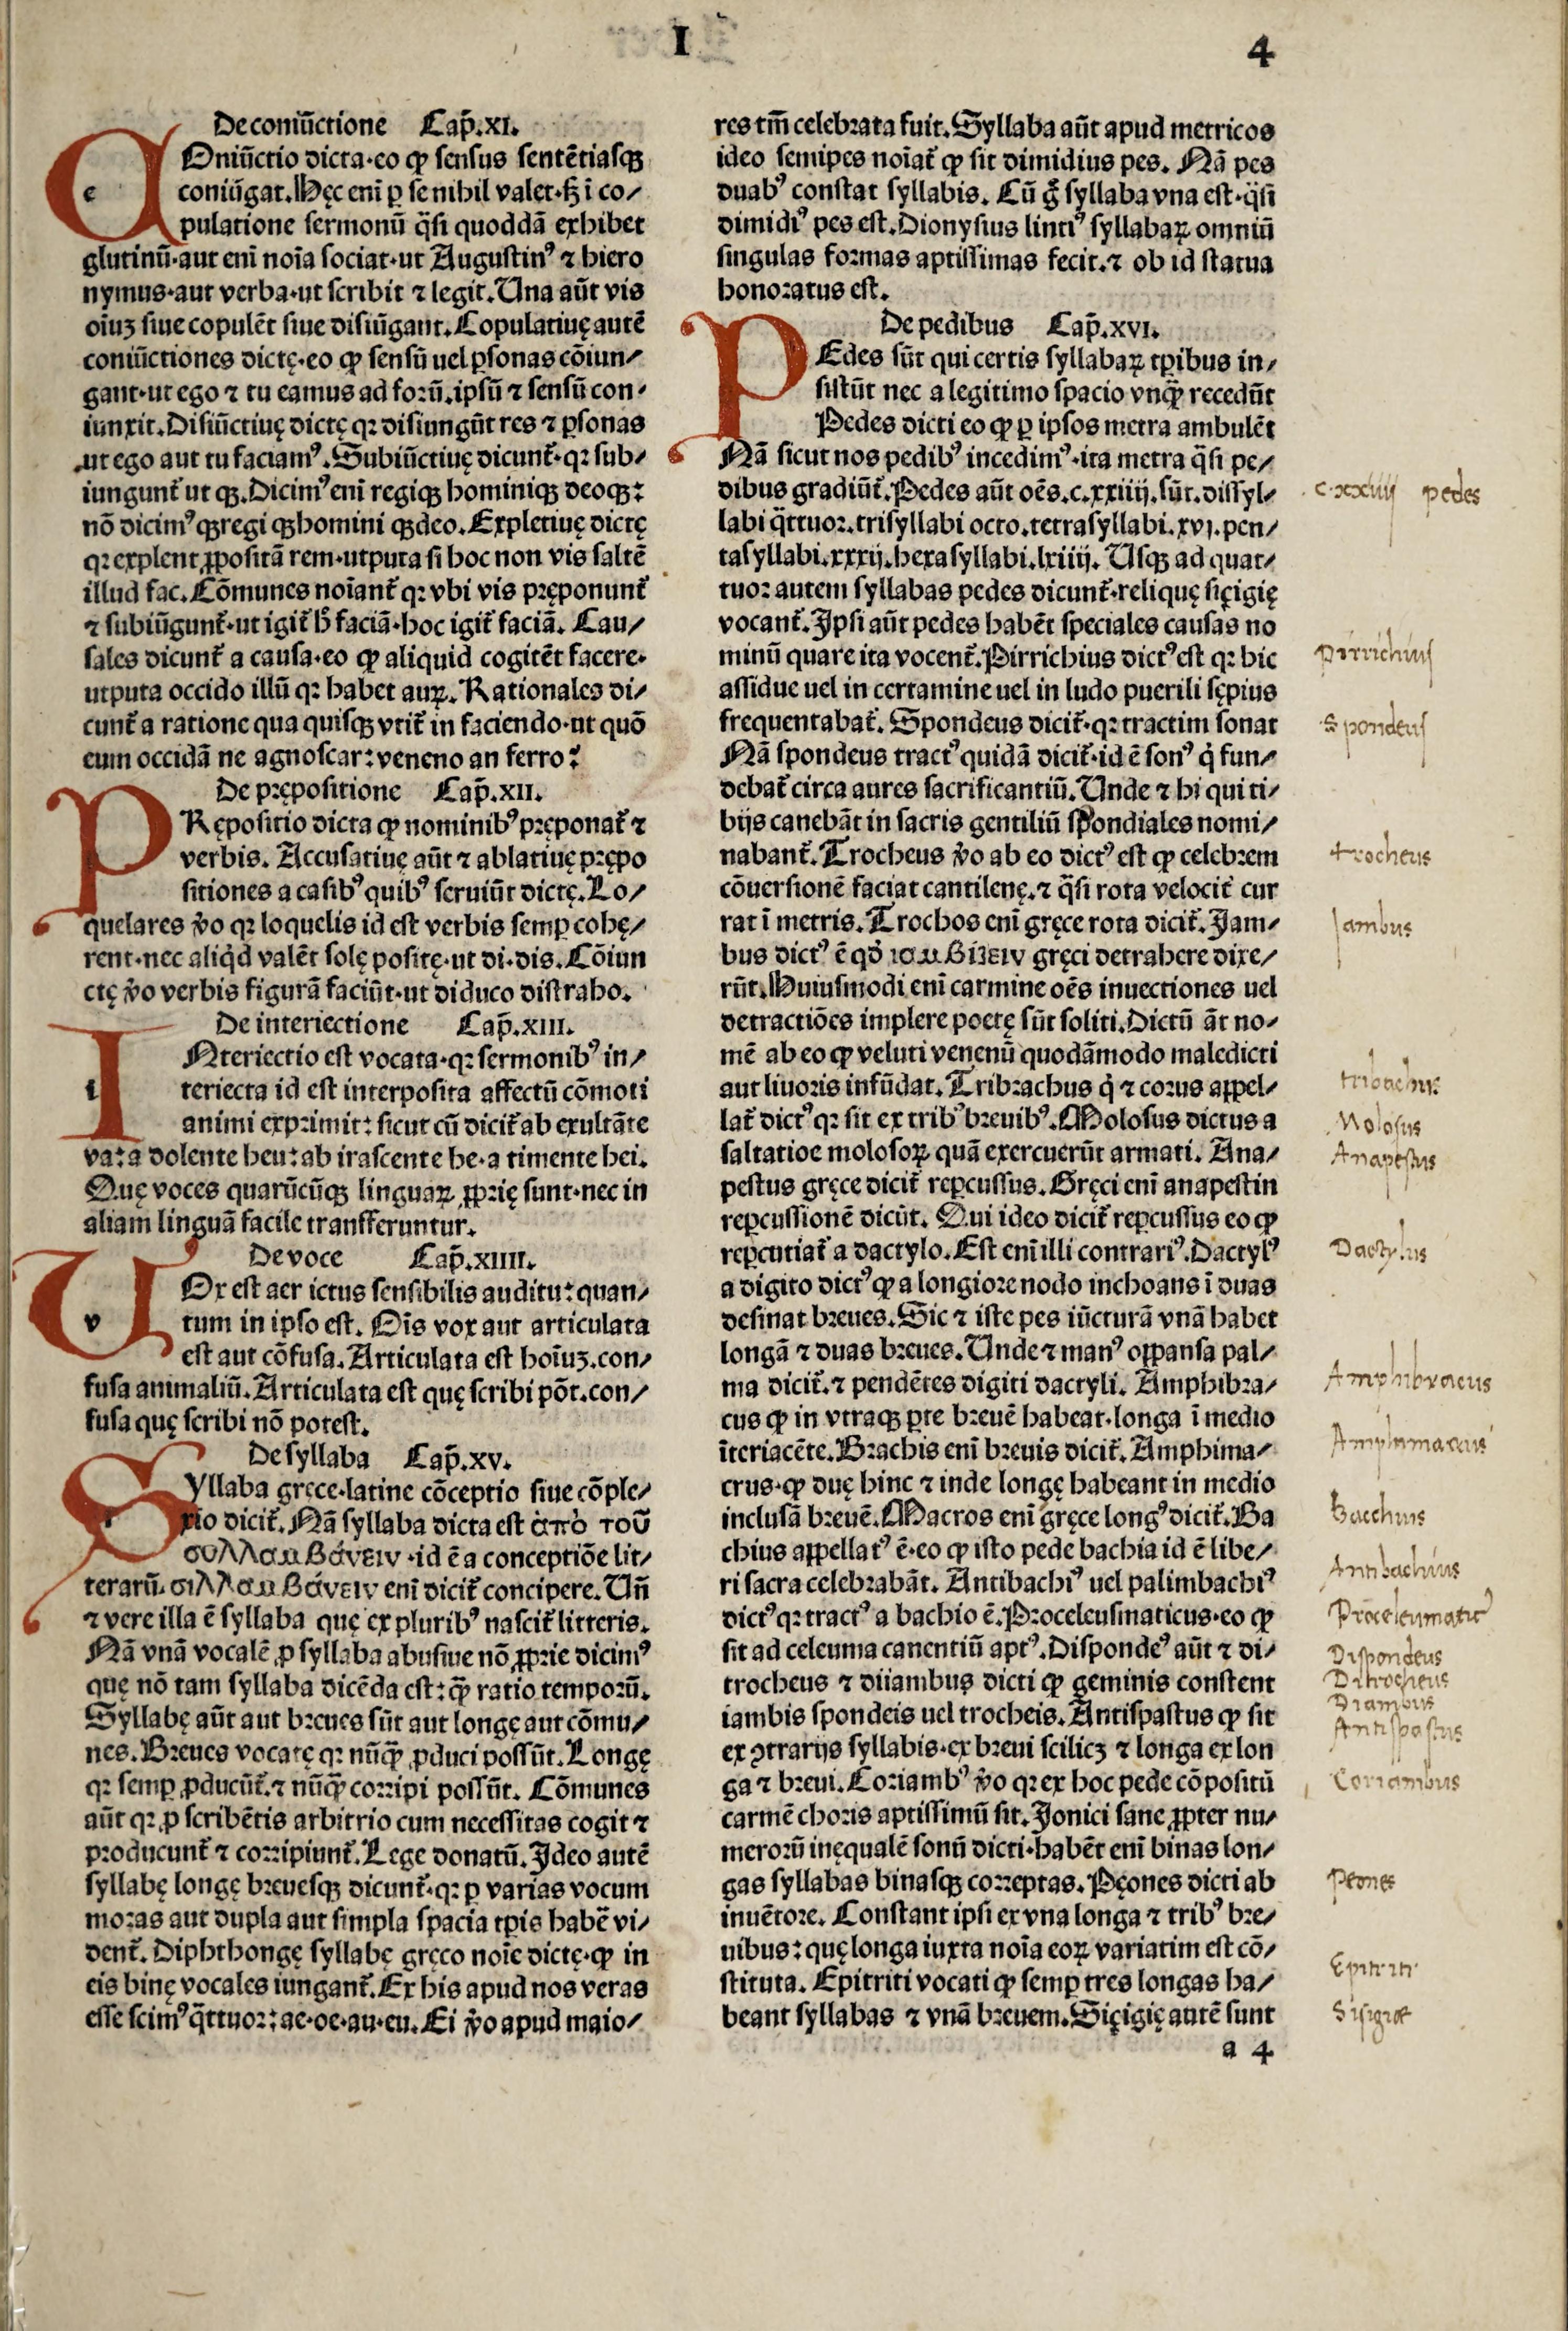 I
4
De coniũctione Cap̃.XI.
COniũctio dicta·eo ꝙ sensus sentẽtiasqꝫ
coniũgat.Hęc eni̅ ꝑ se nihil valet·sꝫ i̅ co/
pulatione sermonũ q̃si quoddã exhibet
glutinũ·aut eni̅ noi̅a sociat·ut Augustinꝰ ⁊ hiero
nymus·aut verba·ut scribit ⁊ legit.Una aũt vis
oi̅uꝫ siue copulẽt siue disiũgant.Copulatiuę autẽ
coniũctiones dictę·eo ꝙ sensũ uel ꝑsonas cõiun/
gant·ut ego ⁊ tu eamus ad forũ.ipsũ ⁊ sensũ con/
iunxit.Disiũctiuę dictę qꝛ disiungũt res ⁊ ꝑsonas
.ut ego aut tu faciamꝰ.Subiũctiuę dicunt̃·qꝛ sub/
iungunt̃ ut qꝫ.Dicimꝰ eni̅ regiqꝫ hominiqꝫ deoqꝫ:
nõ dicimꝰ qꝫregi qꝫhomini qꝫdeo.Expletiuę dictę
qꝛ explent ꝓpositã rem·utputa si hoc non vis saltẽ
illud fac.Cõmunes noi̅ant̃ qꝛ vbi vis pręponunt̃
⁊ subiũgunt̃·ut igit̃ h̾ faciã·hoc igit̃ faciã. Cau/
sales dicunt̃ a causa·eo ꝙ aliquid cogitẽt facere·
utputa occido illũ qꝛ habet auꝝ. Rationales di/
cunt̃ a ratione qua quisqꝫ vtit̃ in faciendo·ut quõ
eum occidã ne agnoscar:veneno an ferro?
De prępositione Cap̃.XII.
PRępositio dicta ꝙ nominibꝰ pręponat̃ ⁊
verbis. Accusatiuę aũt ⁊ ablatiuę prępo
sitiones a casibꝰ quibꝰ seruiũt dictę.Lo/
quelares v̊o qꝛ loquelis id est verbis semꝑ cohę/
rent·nec aliq̇d valẽt solę positę·ut di·dis.Cõiun
ctę v̊o verbis figurã faciũt·ut diduco distraho.
De interiectione Cap̃.XIII.
INteriectio est vocata·qꝛ sermonibꝰ in/
teriecta id est interposita affectũ cõmoti
animi exprimit: sicut cũ dicit̃ ab exultãte
va:a dolente heu:ab irascente he·a timente hei.
Quę voces quarũcũqꝫ linguaꝝ ꝓprię sunt·nec in
aliam linguã facile transferuntur.
De voce Cap̃.XIIII.
VOx est aer ictus sensibilis auditu:quan/
tum in ipso est. Oi̅s vox aut articulata
est aut cõfusa.Articulata est hoi̅uꝫ.con/
fusa animaliũ.Articulata est quę scribi põt.con/
fusa quę scribi nõ potest.
De syllaba Cap̃.XV.
Syllaba gręce·latine cõceptio siue cõple/
xio dicit̃. Nã syllaba dicta est ἀπὸ τοῦ
συλλαμβάνειν ·id ẽ a conceptiõe lit/
terarũ. σιλλαμβάνειν eni̅ dicit̃ concipere. Un̅
⁊ vere illa ẽ syllaba quę ex pluribꝰ nascit̃ litteris.
Nã vnã vocalẽ ꝓ syllaba abusiue nõ ꝓprie dicimꝰ
quę nõ tam syllaba dicẽda est:q̃ꝫ ratio temporũ.
Syllabę aũt aut breues sũt aut longę aut cõmu/
nes. Breues vocatę qꝛ nũq̃ꝫ ꝓduci possũt. Longę
qꝛ semꝑ ꝓducũt̃.⁊ nũq̃ꝫ corripi possũt. Cõmunes
aũt qꝛ ꝓ scribẽtis arbitrio cum necessitas cogit ⁊
producunt̃ ⁊ corripiunt̃. Lege donatũ. Ideo autẽ
syllabę longę breuesqꝫ dicunt̃·qꝛ ꝑ varias vocum
moras aut dupla aut simpla spacia tꝑis habẽ vi/
dent̃. Diphthongę syllabę gręco noi̅e dictę·ꝙ in
eis binę vocales iungant̃. Ex his apud nos veras
esse scimꝰ q̃ttuor:ae·oe·au·eu. Ei v̊o apud maio/
res tm̅ celebrata fuit.Syllaba aũt apud metricos
ideo semipes noi̅at̃ ꝙ sit dimidius pes. Nã pes
duabꝰ constat syllabis. Cũ g̊ syllaba vna est·q̃si
dimidiꝰ pes est.Dionysius lintiꝰ syllabaꝝ omniũ
singulas formas aptissimas fecit.⁊ ob id statua
honoratus est.
De pedibus Cap̃.XVI.
PEdes sũt qui certis syllabaꝝ tꝑibus in/
sistũt nec a legitimo spacio vnq̃ꝫ recedũt
Pedes dicti eo ꝙ ꝑ ipsos metra ambulẽt
Nã sicut nos pedibꝰ incedimꝰ·ita metra q̃si pe/
dibus gradiũt̃.Pedes aũt oẽs.c.xxiiij.sũt.dissyl/
labi q̃ttuor.trisyllabi octo.tetrasyllabi.xvj.pen/
tasyllabi.xxxij.hexasyllabi.lxiiij. Usqꝫ ad quat/
tuor autem syllabas pedes dicunt̃·reliquę siçigię
vocant̃.Ipsi aũt pedes habẽt speciales causas no
minũ quare ita vocent̃.Pirrichius dictꝰ est qꝛ hic
assidue uel in certamine uel in ludo puerili sępius
frequentabat̃. Spondeus dicit̃·qꝛ tractim sonat
Nã spondeus tractꝰ quidã dicit̃·id ẽ sonꝰ q̇ fun/
debat̃ circa aures sacrificantiũ.Unde ⁊ hi qui ti/
bijs canebãt in sacris gentiliũ spondiales nomi/
nabant̃.Trocheus v̊o ab eo dictꝰ est ꝙ celebrem
cõuersionẽ faciat cantilenę.⁊ q̃si rota velocit̃ cur
rat i̅ metris.Trochos eni̅ gręce rota dicit̃.Iam/
bus dictꝰ ẽ qđ ιαμβίζειν gręci detrahere dixe/
rũt.Huiusmodi eni̅ carmine oẽs inuectiones uel
detractiões implere poetę sũt soliti.Dictũ ãt no/
mẽ ab eo ꝙ veluti venenũ quodãmodo maledicti
aut liuoris infũdat.Tribrachus q̇ ⁊ corus appel/
lat̃ dictꝰ qꝛ sit ex tribꝰ breuibꝰ.Molosus dictus a
saltatioe molosoꝝ quã exercuerũt armati. Ana/
pestus gręce dicit̃ reꝑcussus.Gręci eni̅ anapestin
reꝑcussionẽ dicũt. Qui ideo dicit̃ reꝑcussus eo ꝙ
reꝑcutiat̃ a dactylo.Est eni̅ illi contrariꝰ.Dactylꝰ
a digito dictꝰ ꝙ a longiore nodo inchoans i̅ duas
desinat breues.Sic ⁊ iste pes iũcturã vnã habet
longã ⁊ duas breues.Unde ⁊ manꝰ oppansa pal/
ma dicit̃.⁊ pendẽtes digiti dactyli. Amphibra/
cus ꝙ in vtraqꝫ ꝑte breuẽ habeat·longa i̅ medio
i̅teriacẽte.Brachis eni̅ breuis dicit̃.Amphima/
crus·ꝙ duę hinc ⁊ inde longę habeant in medio
inclusã breuẽ.Macros eni̅ gręce longꝰ dicit̃.Ba
chius appellatꝰ ẽ·eo ꝙ isto pede bachia id ẽ libe/
ri sacra celebrabãt. Antibachiꝰ uel palimbachiꝰ
dictꝰ qꝛ tractꝰ a bachio ẽ.Proceleusmaticus·eo ꝙ
sit ad celeuma canentiũ aptꝰ.Dispondeꝰ aũt ⁊ di/
trocheus ⁊ diiambus dicti ꝙ geminis constent
iambis spondeis uel trocheis.Antispastus ꝙ sit
ex ꝯtrarijs syllabis·ex breui scilicꝫ ⁊ longa ex lon
ga ⁊ breui.Coriambꝰ v̊o qꝛ ex hoc pede cõpositũ
carmẽ choris aptissimũ sit.Ionici sane ꝓpter nu/
merorũ inęqualẽ sonũ dicti·habẽt eni̅ binas lon/
gas syllabas binasqꝫ correptas.Pęones dicti ab
inuẽtore. Constant ipsi ex vna longa ⁊ tribꝰ bre/
uibus:quę longa iuxta noi̅a eoꝝ variatim est cõ/
stituta. Epitriti vocati ꝙ semꝑ tres longas ha/
beant syllabas ⁊ vnã breuem.Siçigię autẽ sunt
a 4
c·xxiiij pedes
Pirrichius
Spondeus
trocheus
Iambus
tribachus
Molosus
Anapestus
Dactylus
Amphibracus
Amphimacrus
Bacchius
Antibachius
Proceleumaticꝰ
Dispondeus
Ditrocheus
Diambus
Antispastus
Coriambus
Peones
Epitriti
Sisigiae